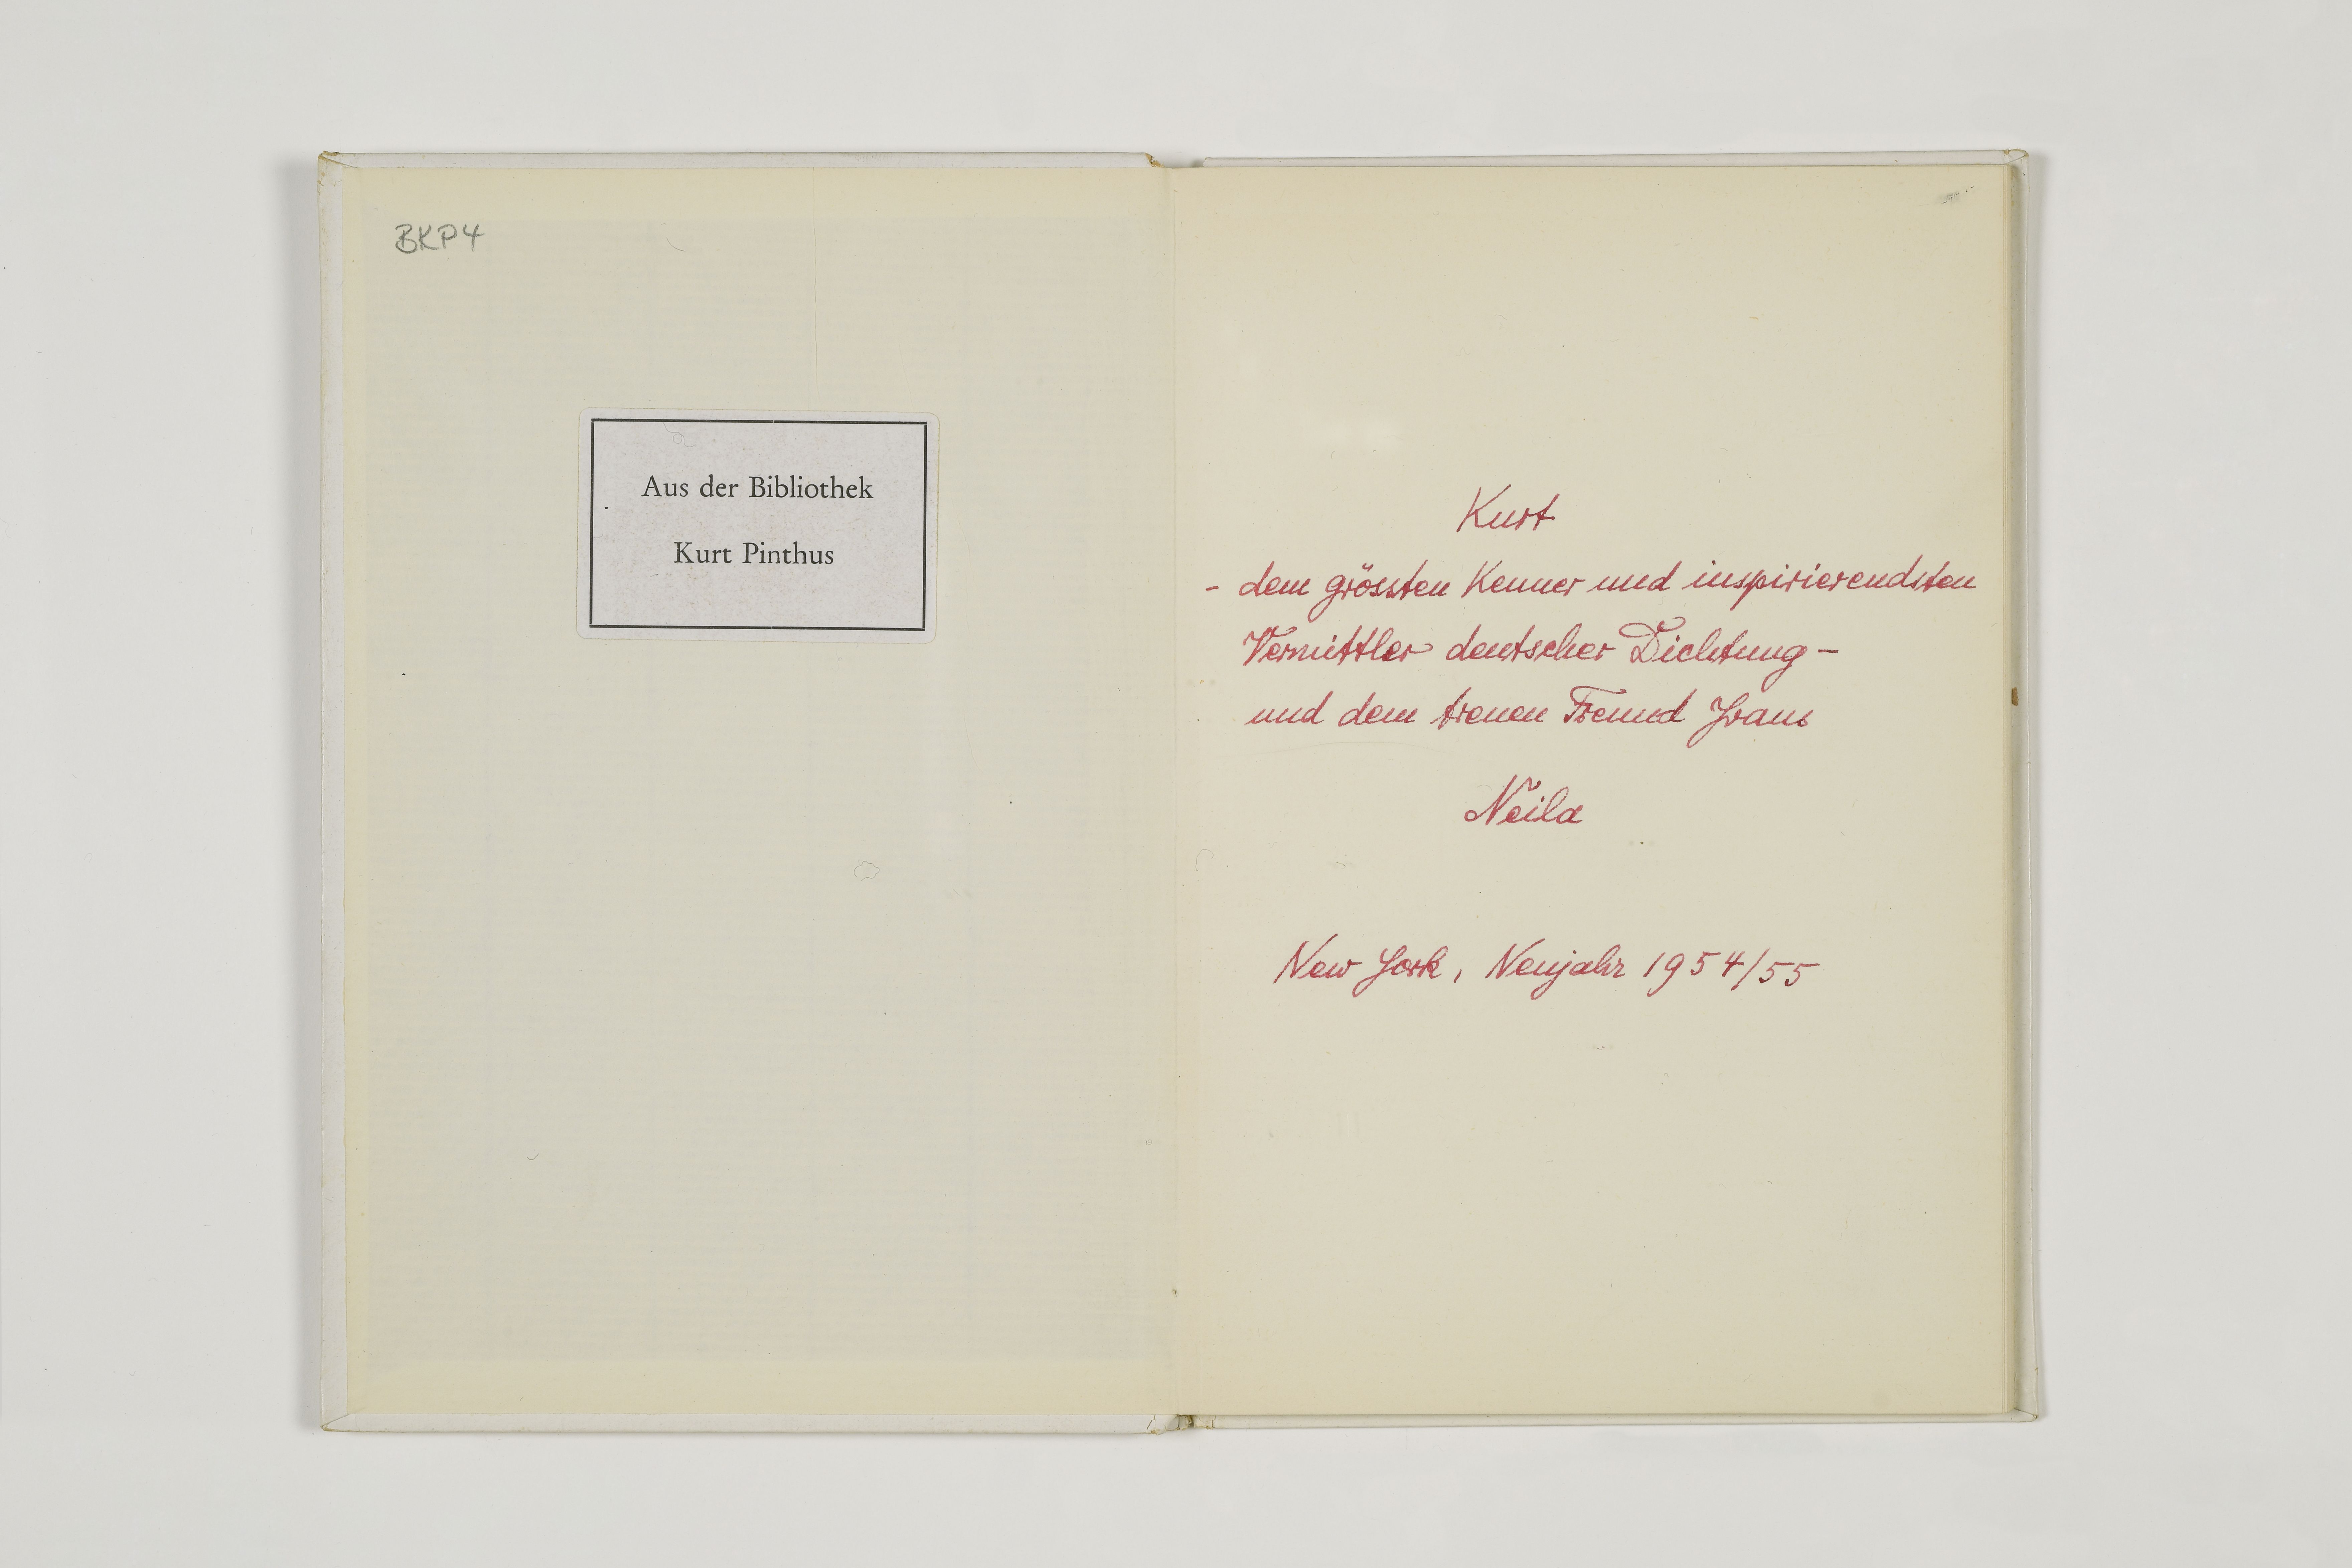 BKP4
Aus der Bibliothek
Kurt Pinthus
Kurt
- dem grössten Kenner und inspirierendsten
Vermittler deutscher Dichtung -
und dem treuen Freund Ivans
Neila
New York, Neujahr 1954/55